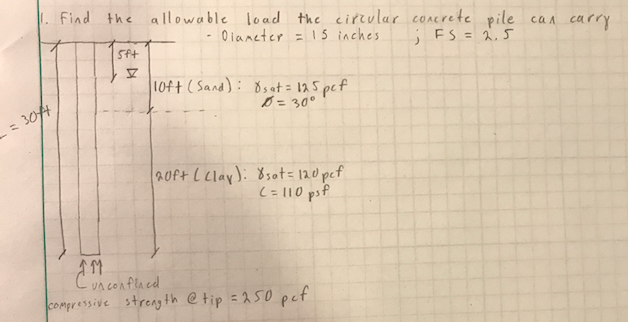 1. Find the allowable load the circular concrete pile can carry
- Diameter = 15 inches ; FS = 2.5
5ft
10ft (Sand): γsat = 125 pcf
ø = 30°
L = 30ft
20ft (Clay): γsat = 120 pcf
C = 110 psf
unconfined
compressive strength @ tip = 250 pcf